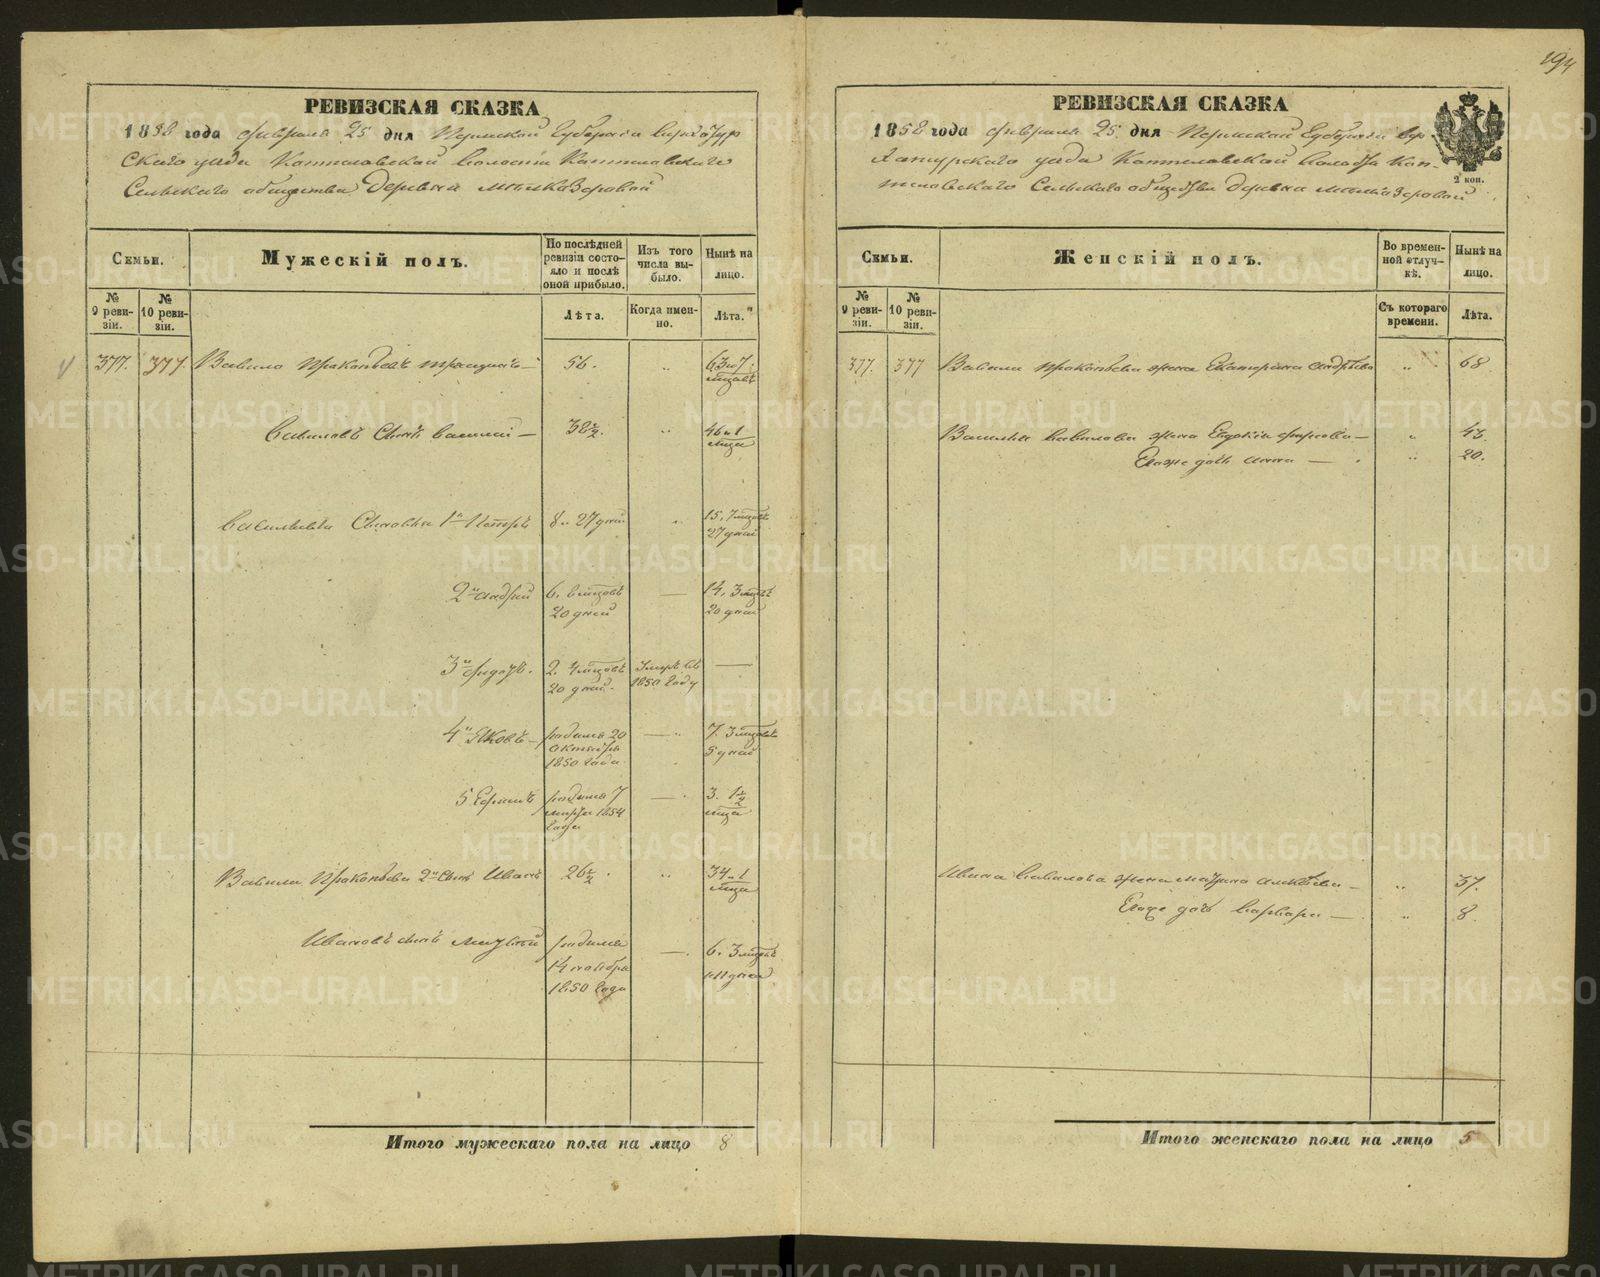 194
РЕВИЗСКАЯ СКАЗКА
1858 года февраля 25 дня Пермской Губернiи Верхотур
скаго уезда Коптеловской волости Коптеловскаго
Сельскаго общества Деревня
Семьи.
Мужескiй полъ.
По послѣдней ревизiи состо-
яло и послѣ оной прибыло.
Изъ того числа вы-
было.
Нынѣ на лицо.
№ 9 реви-
зiи.
№ 10 реви-
зiи.
Лѣта.
Когда имен-
но.
Лѣта.
377. 377 Вавило Прокопьевъ 56. " 63 и 7 мцовъ
Вавиловъ Сынъ Василiй — 38½. " 46 и 1 мца
Васильевы Сыновья 1й Петръ 8 и 27 дней " 15, 7 мцовъ 27 дней
2й Андрей 6. 6 мцовъ 20 дней — 14, 3 мцовъ 20 дней
3й Федотъ. 2. 4 мцовъ 20 дней. 1850 году —
4й Яковъ — родился 20 октября 1850 года — " 7. 3 мцовъ 5 дней
5 Ефимъ родился 7 марта 1854 года — . 3. ½ мца
Вавилы Прокопьева 2й Сынъ Иванъ 26½. " 34 и 1 мца
Ивановъ сынъ родился 14 ноября 1850 года — . 6. 3 мцовъ и 11 дней
Итого мужескаго пола на лицо 8
РЕВИЗСКАЯ СКАЗКА
1858 года февраля 25 дня Пермской Губернiи Вер-
хотурскаго уезда Коптеловской Волости Коп-
теловскаго Сельскаго общества Деревня
2 коп.
Семьи.
Женскiй полъ.
Во времен-
ной отлуч-
кѣ.
Нынѣ на лицо.
№ 9 реви-
зiи.
№ 10 реви-
зiи.
Съ котораго времени.
Лѣта.
377. 377 Вавилы Прокопьева жена Екатерина Андрѣева " 68
Василья Вавилова жена Евдокiя — " 43.
Ея же дочь Анна — . " 20.
Ивана Вавилова жена Алексѣева — " 37.
Ея же дочь Варвара — . " 8.
Итого женскаго пола на лицо 5
METRIKI.GASO-URAL.RU